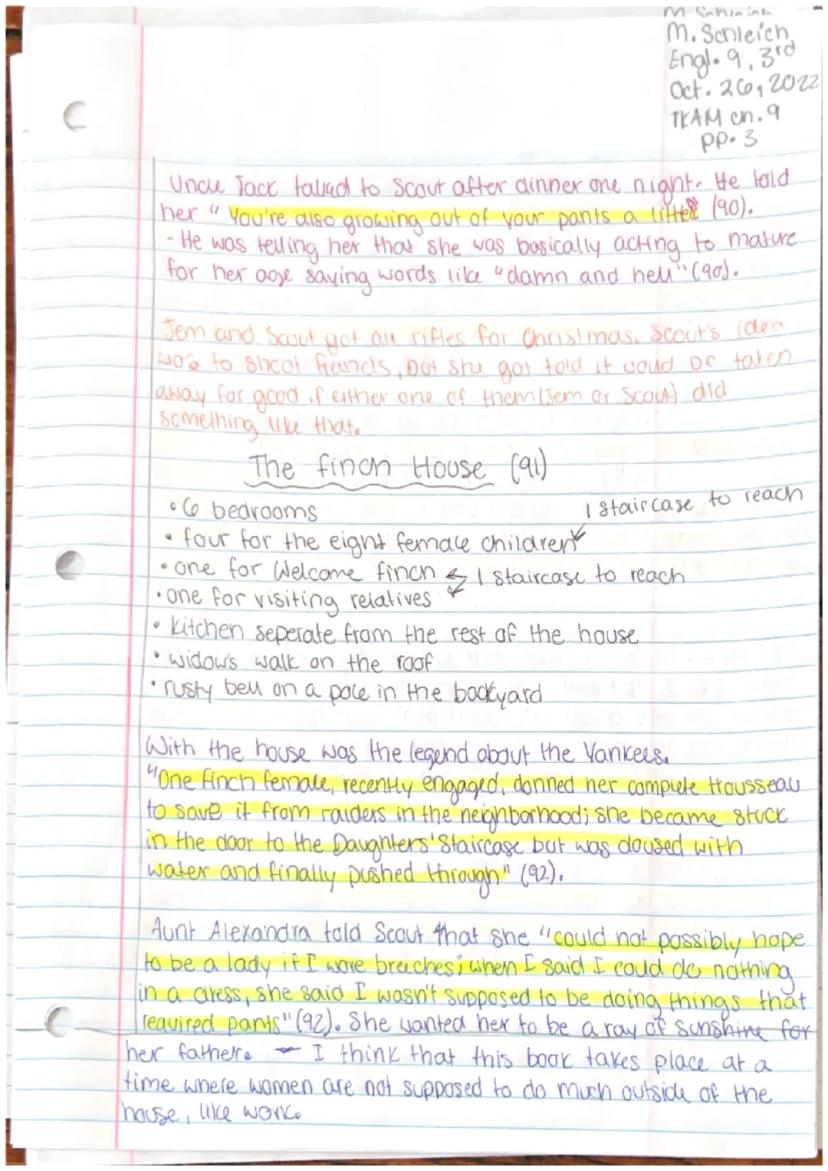 M. Schleich
M. Schleich
Engl. 9, 3rd
Oct. 26, 2022
TKAM ch. 9
pp. 3
Uncle Jack talked to Scout after dinner one night. He told
her "You're also growing out of your pants a little" (90).
- He was telling her that she was basically acting to mature
for her age saying words like "damn and hell" (90).
Jem and Scout got air rifles for Christmas. Scout's idea
was to shoot Francis, but she got told it would be taken
away for good if either one of them (Jem or Scout) did
something like that.
The Finch House (91)
• 6 bedrooms
1 staircase to reach
• four for the eight female children
• one for Welcome Finch 1 staircase to reach
• one for visiting relatives
• kitchen seperate from the rest of the house
• widow's walk on the roof
• rusty bell on a pole in the backyard
With the house was the legend about the Yankees.
"One Finch female, recently engaged, donned her complete trousseau
to save it from raiders in the neighborhood; she became stuck
in the door to the Daughters' Staircase but was doused with
water and finally pushed through" (92).
Aunt Alexandra told Scout that she "could not possibly hope
to be a lady if I wore breaches; when I said I could do nothing
in a dress, she said I wasn't supposed to be doing things that
required pants" (92). She wanted her to be a ray of sunshine for
her father. - I think that this book takes place at a
time where women are not supposed to do much outside of the
house, like work.